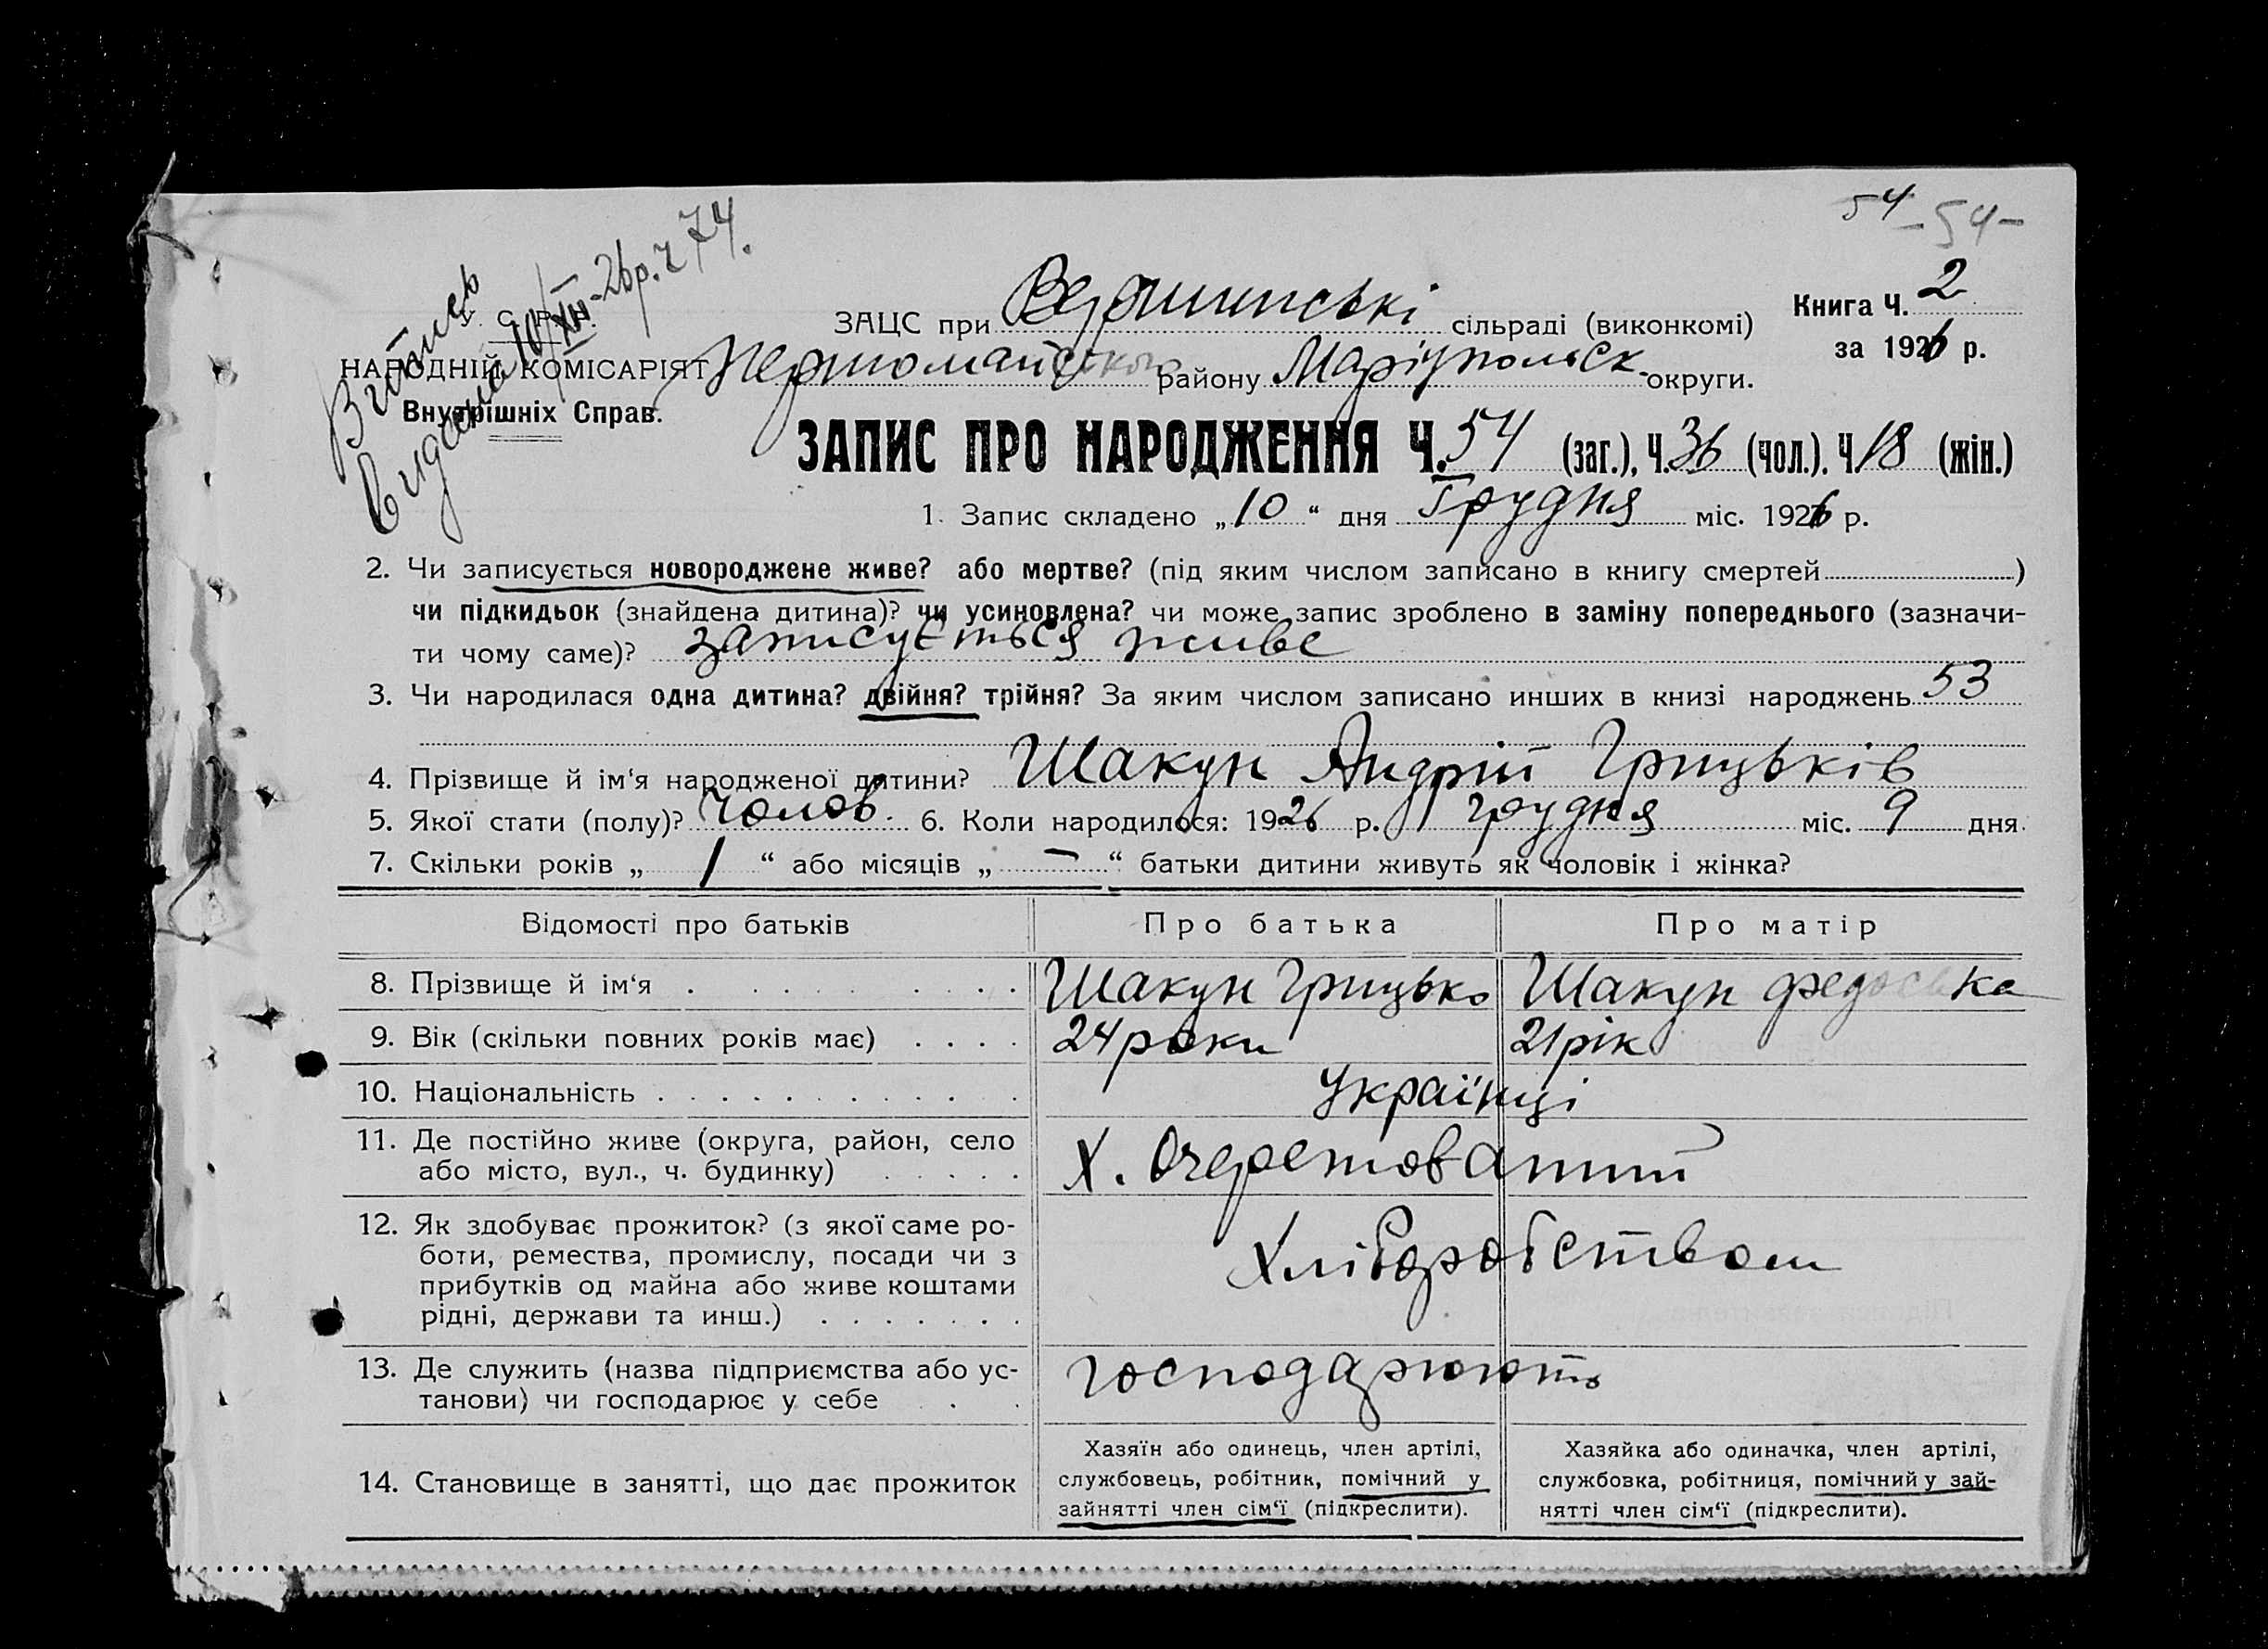 54 - 54 -
Витпись
Видано 10/XII-26р. ч 74.
У. С. Р. Р.
НАРОДНІЙ КОМІСАРІЯТ
Внутрішніх Справ.
ЗАЦС при сільраді (виконкомі)
Книга Ч. 2
за 1926 р.
Першомайського району Маріупольськ. округи.
ЗАПИС ПРО НАРОДЖЕННЯ Ч. 54 (заг.), Ч. 36 (чол.). Ч 18 (жін.)
1. Запис складено „10“ дня Грудня міс. 1926 р.
2. Чи записується новороджене живе? або мертве? (під яким числом записано в книгу смертей )
чи підкидьок (знайдена дитина)? чи усиновлена? чи може запис зроблено в заміну попереднього (зазначи-
ти чому саме)? записується живе
3. Чи народилася одна дитина? двійня? трійня? За яким числом записано инших в книзі народжень 53
4. Прізвище й ім‘я народженої дитини? Шакун Андрій Грицьків
5. Якої стати (полу)? чолов. 6. Коли народилося: 1926 р. грудня міс. 9 дня.
7. Скільки років „ 1 “ або місяців „ — “ батьки дитини живуть як чоловік і жінка?
Відомості про батьків Про батька Про матір
8. Прізвище й ім‘я . . . . . . . . Шакун Грицько Шакун Федоська
9. Вік (скільки повних років має) . . . . 24 роки 21 рік
10. Національність . . . . . . . . . . . . Українці
11. Де постійно живе (округа, район, село
або місто, вул., ч. будинку) . . . . . Х. Очеретоватий
12. Як здобуває прожиток? (з якої саме ро-
боти, ремества, промислу, посади чи з
прибутків од майна або живе коштами
рідні, держави та инш.) . . . . . . . Хліборобством
13. Де служить (назва підприємства або ус-
танови) чи господарює у себе . . . господарюють
14. Становище в занятті, що дає прожиток
Хазяїн або одинець, член артілі,
службовець, робітник, помічний у
зайнятті член сім‘ї (підкреслити).
Хазяйка або одиначка, член артілі,
службовка, робітниця, помічний у зай-
нятті член сім‘ї (підкреслити).